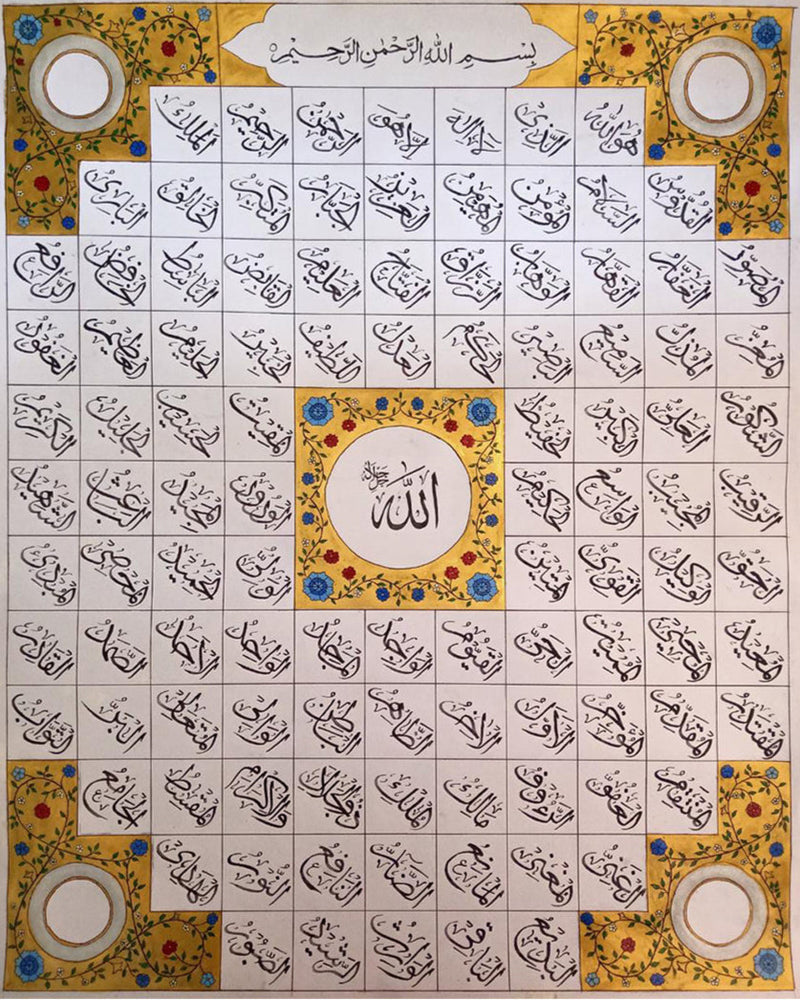 بِسْمِ اللهِ الرَّحْمٰنِ الرَّحِيْمِ
هُوَاللهُ الَّذِىْ لَآاِلٰهَ اِلَّاهُوَ الرَّحْمٰنُ الرَّحِيْمُ الْمَلِكُ
الْقُدُّوْسُ السَّلَامُ الْمُؤْمِنُ الْمُهَيْمِنُ الْعَزِيْزُ الْجَبَّارُ الْمُتَكَبِّرُ الْخَالِقُ الْبَارِئُ
الْمُصَوِّرُ الْغَفَّارُ الْقَهَّارُ الْوَهَّابُ الرَّزَّاقُ الْفَتَّاحُ الْعَلِيْمُ الْقَابِضُ الْبَاسِطُ الْخَافِضُ الرَّافِعُ
الْمُعِزُّ الْمُذِلُّ السَّمِيْعُ الْبَصِيْرُ الْحَكَمُ الْعَدْلُ اللَّطِيْفُ الْخَبِيْرُ الْحَلِيْمُ الْعَظِيْمُ الْغَفُوْرُ
الشَّكُوْرُ الْعَلِىُّ الْكَبِيْرُ الْحَفِيْظُ الْمُقِيْتُ الْحَسِيْبُ الْجَلِيْلُ الْكَرِيْمُ
الرَّقِيْبُ الْمُجِيْبُ الْوَاسِعُ الْحَكِيْمُ الْوَدُوْدُ الْمَجِيْدُ الْبَاعِثُ الشَّهِيْدُ
الله جل جلاله
الْحَقُّ الْوَكِيْلُ الْقَوِىُّ الْمَتِيْنُ الْوَلِىُّ الْحَمِيْدُ الْمُحْصِىْ الْمُبْدِئُ
الْمُعِيْدُ الْمُحْيِىْ الْمُمِيْتُ الْحَىُّ الْقَيُّوْمُ الْوَاجِدُ الْمَاجِدُ الْوَاحِدُ الْاَحَدُ الصَّمَدُ الْقَادِرُ
الْمُقْتَدِرُ الْمُقَدِّمُ الْمُؤَخِّرُ الْاَوَّلُ الْاٰخِرُ الظَّاهِرُ الْبَاطِنُ الْوَالِىْ الْمُتَعَالِىْ الْبَرُّ التَّوَّابُ
الْمُنْتَقِمُ الْعَفُوُّ الرَّءُوْفُ مَالِكُ الْمُلْكِ ذُوالْجَلَالِ وَالْاِكْرَامِ الْمُقْسِطُ الْجَامِعُ
الْغَنِىُّ الْمُغْنِىْ الْمَانِعُ الضَّآرُّ النَّافِعُ النُّوْرُ الْهَادِىْ
الْبَدِيْعُ الْبَاقِىْ الْوَارِثُ الرَّشِيْدُ الصَّبُوْرُ